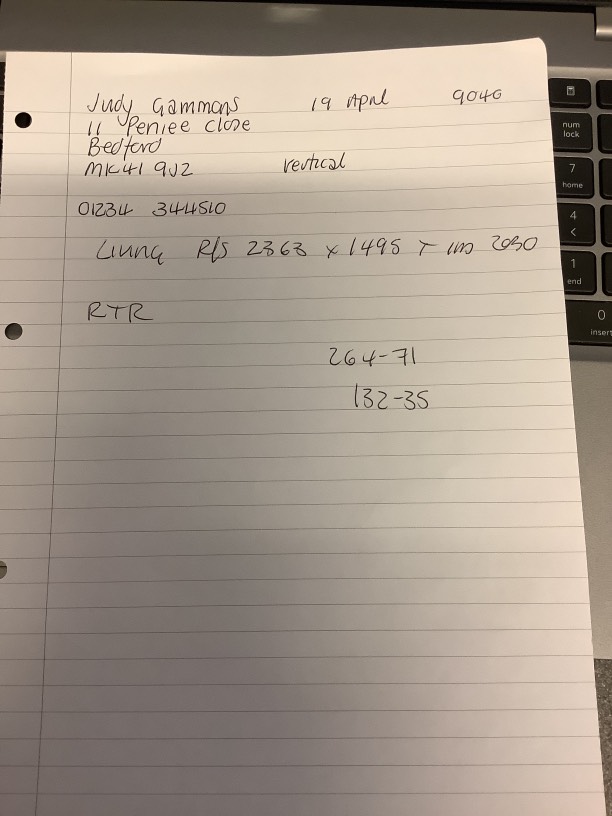 Judy Gammons 19 April 9040
11 Peniee Close
Bedford
MK41 9UZ vertical
01234 344510
Living R/S 2363 x 1495 T 2030
RTR
264-71
132-35
num lock
7 home
4 <
1 end
0 insert